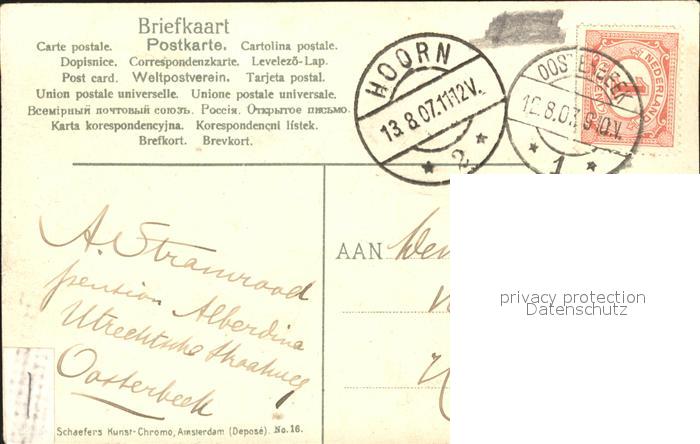 Briefkaart
Carte postale. Postkarte. Cartolina postale.
Dopisnice. Correspondenzkarte. Levelező-Lap.
Post card. Weltpostverein. Tarjeta postal.
Union postale universelle. Unione postale universale.
Всемірный почтовый союзъ. Россія. Открытое письмо.
Karta korespondencyjna. Korespondenční lístek.
Brefkort. Brevkort.
HOORN
13.8.07.11-12V.
2
OOSTERBEEK
12.8.07. 9-10.V.
1
NEDERLAND
1
A. Stramrood
pension Alberdina
Utrechtsche Straatweg
Oosterbeek
AAN
privacy protection
Datenschutz
Schaefers Kunst-Chromo, Amsterdam (Deposé). No. 16.